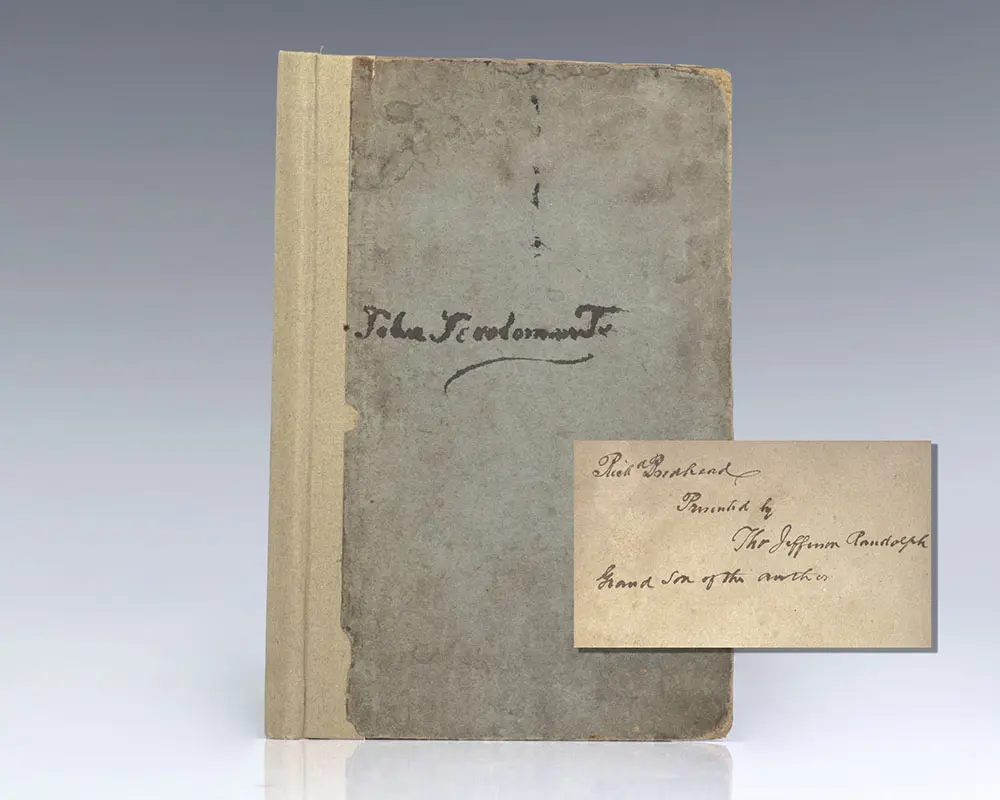 John
Richd Brodhead
Presented by
Tho Jefferson Randolph
Grand Son of the author